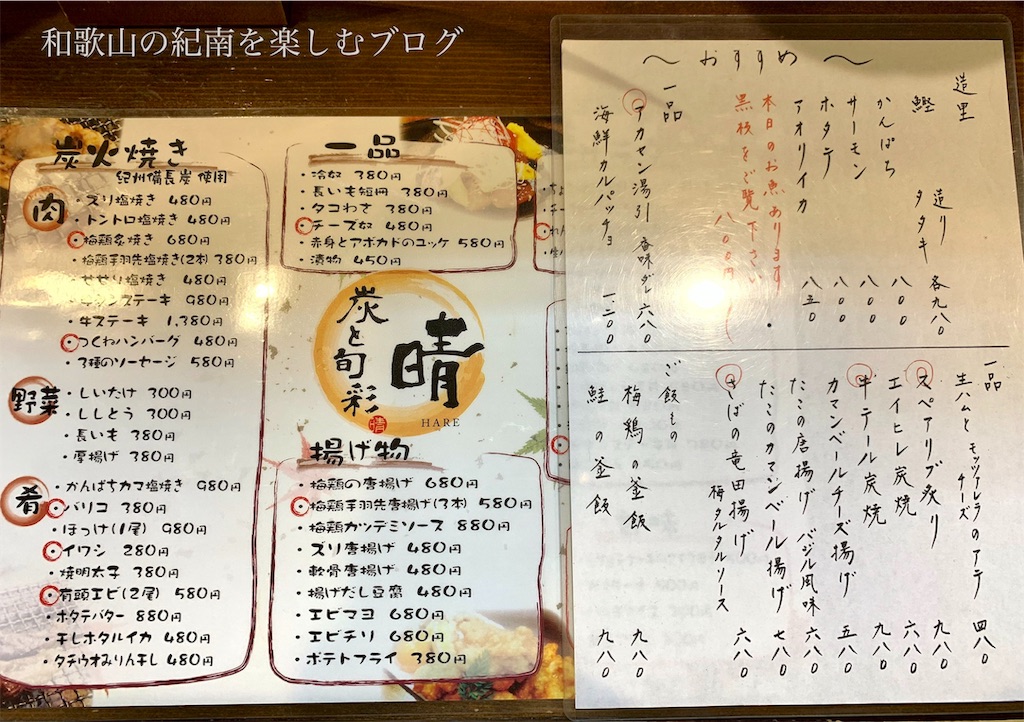 和歌山の紀南を楽しむブログ
炭火焼き
紀州備長炭 使用
肉
・ズリ塩焼き 480円
・トントロ塩焼き 480円
・梅鶏炙焼き 680円
・梅鶏手羽先塩焼き(2本) 380円
・せせり塩焼き 480円
・チキンステーキ 980円
・牛ステーキ 1,380円
・つくねハンバーグ 480円
・3種のソーセージ 580円
野菜
・しいたけ 300円
・ししとう 300円
・長いも 380円
・厚揚げ 380円
肴
・かんぱちカマ塩焼き 980円
・バリコ 380円
・ほっけ(1尾) 980円
・イワシ 280円
・焼明太子 380円
・有頭エビ(2尾) 580円
・ホタテバター 880円
・干しホタルイカ 480円
・タチウオみりん干し 480円
一品
・冷奴 380円
・長いも短冊 380円
・タコわさ 380円
・チーズ奴 480円
・赤身とアボカドのユッケ 580円
・漬物 450円
炭と旬彩
晴
HARE
揚げ物
・梅鶏の唐揚げ 680円
・梅鶏手羽先唐揚げ(3本) 580円
・梅鶏カツデミソース 880円
・ズリ唐揚げ 480円
・軟骨唐揚げ 480円
・揚げだし豆腐 480円
・エビマヨ 680円
・エビチリ 680円
・ポテトフライ 380円
〜おすすめ〜
造里
鰹 造り タタキ 各九八〇
かんぱち 八〇〇
サーモン 八〇〇
ホタテ 八〇〇
アオリイカ 八五〇
本日のお魚あります
黒板をご覧下さい
八〇〇円〜
一品
アカセン湯引 香味ダレ 六八〇
海鮮カルパッチョ 一二〇〇
一品
生ハムとモッツァレラのアテ チーズ 四八〇
スペアリブ炙り 九八〇
エイヒレ炭焼 六八〇
牛テール炭焼 九八〇
カマンベールチーズ揚げ 五八〇
たこの唐揚げ バジル風味 六八〇
たこのカマンベール揚げ 七八〇
さばの竜田揚げ 梅タルタルソース 六八〇
ご飯もの
梅鶏の釜飯 九八〇
鮭の釜飯 九八〇